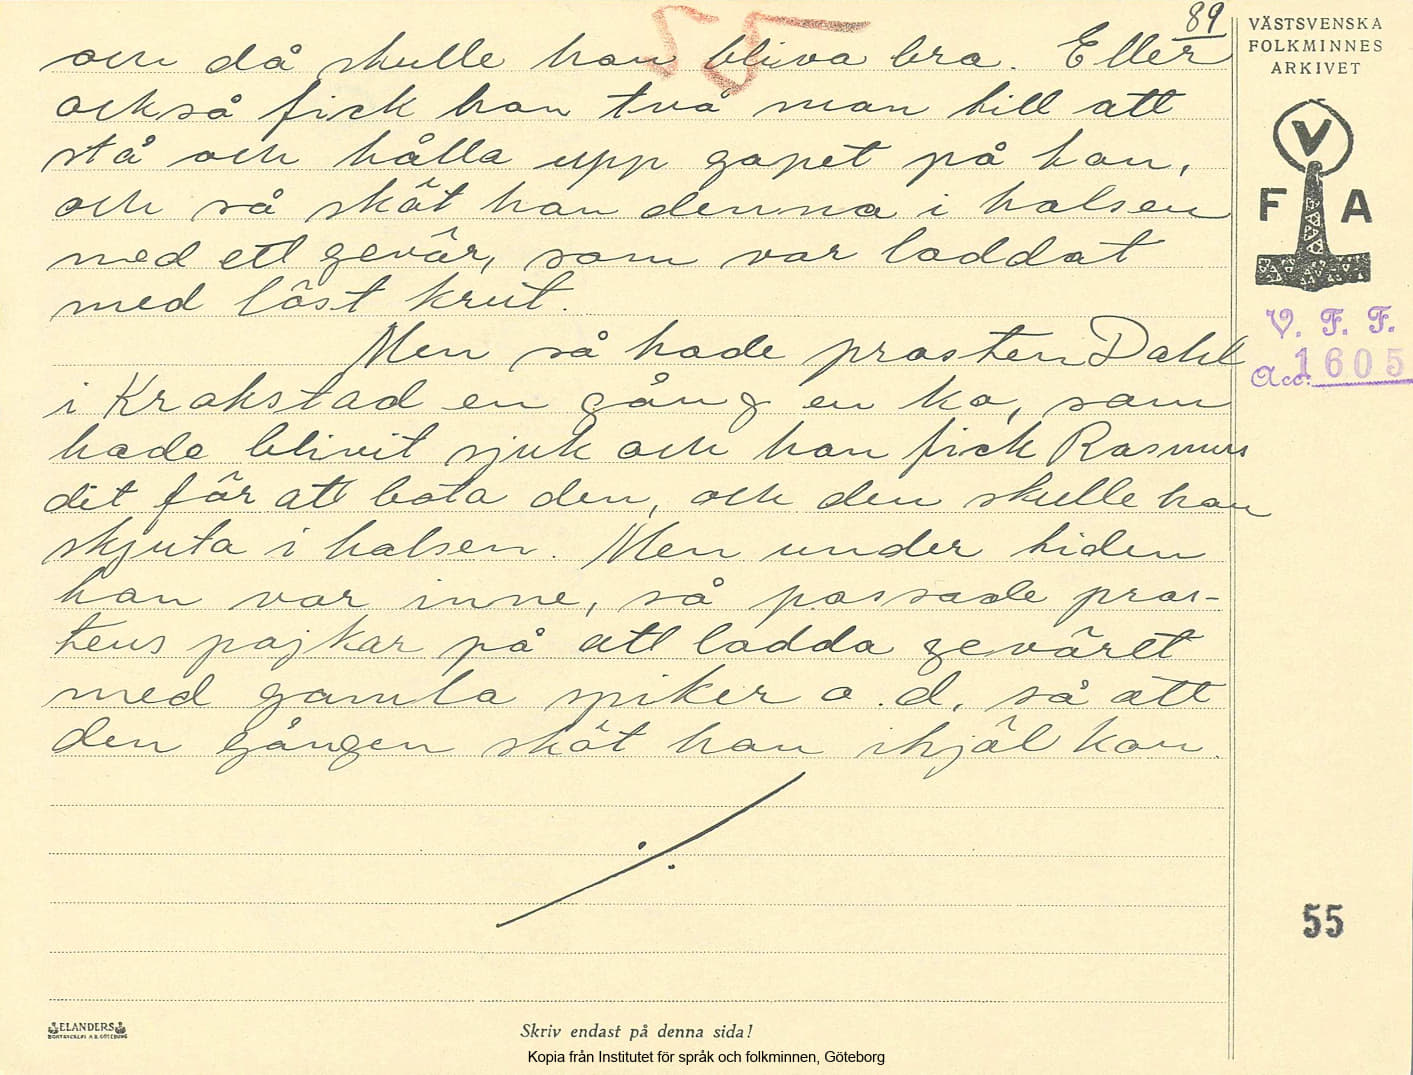 89
55
och då skulle han bliva bra. Eller
också fick han två man till att
stå och hålla upp gapet på han,
och så sköt han denna i halsen
med ett gevär, som var laddat
med löst krut.
Men så hade prosten Dahl
i Krokstad en gång en ko, som
hade blivit sjuk och han fick Rasmus
dit för att bota den, och den skulle han
skjuta i halsen. Men under tiden
han var inne, så passade pros-
tens pojkar på att ladda geväret
med gamla spiker o. d. så att
den gången sköt han ihjäl kon.
VÄSTSVENSKA
FOLKMINNES
ARKIVET
V
F A
V. F. F.
Acc. 1605
55
ELANDERS
BOKTRYCKERI A.B. GÖTEBORG
Skriv endast på denna sida!
Kopia från Institutet för språk och folkminnen, Göteborg